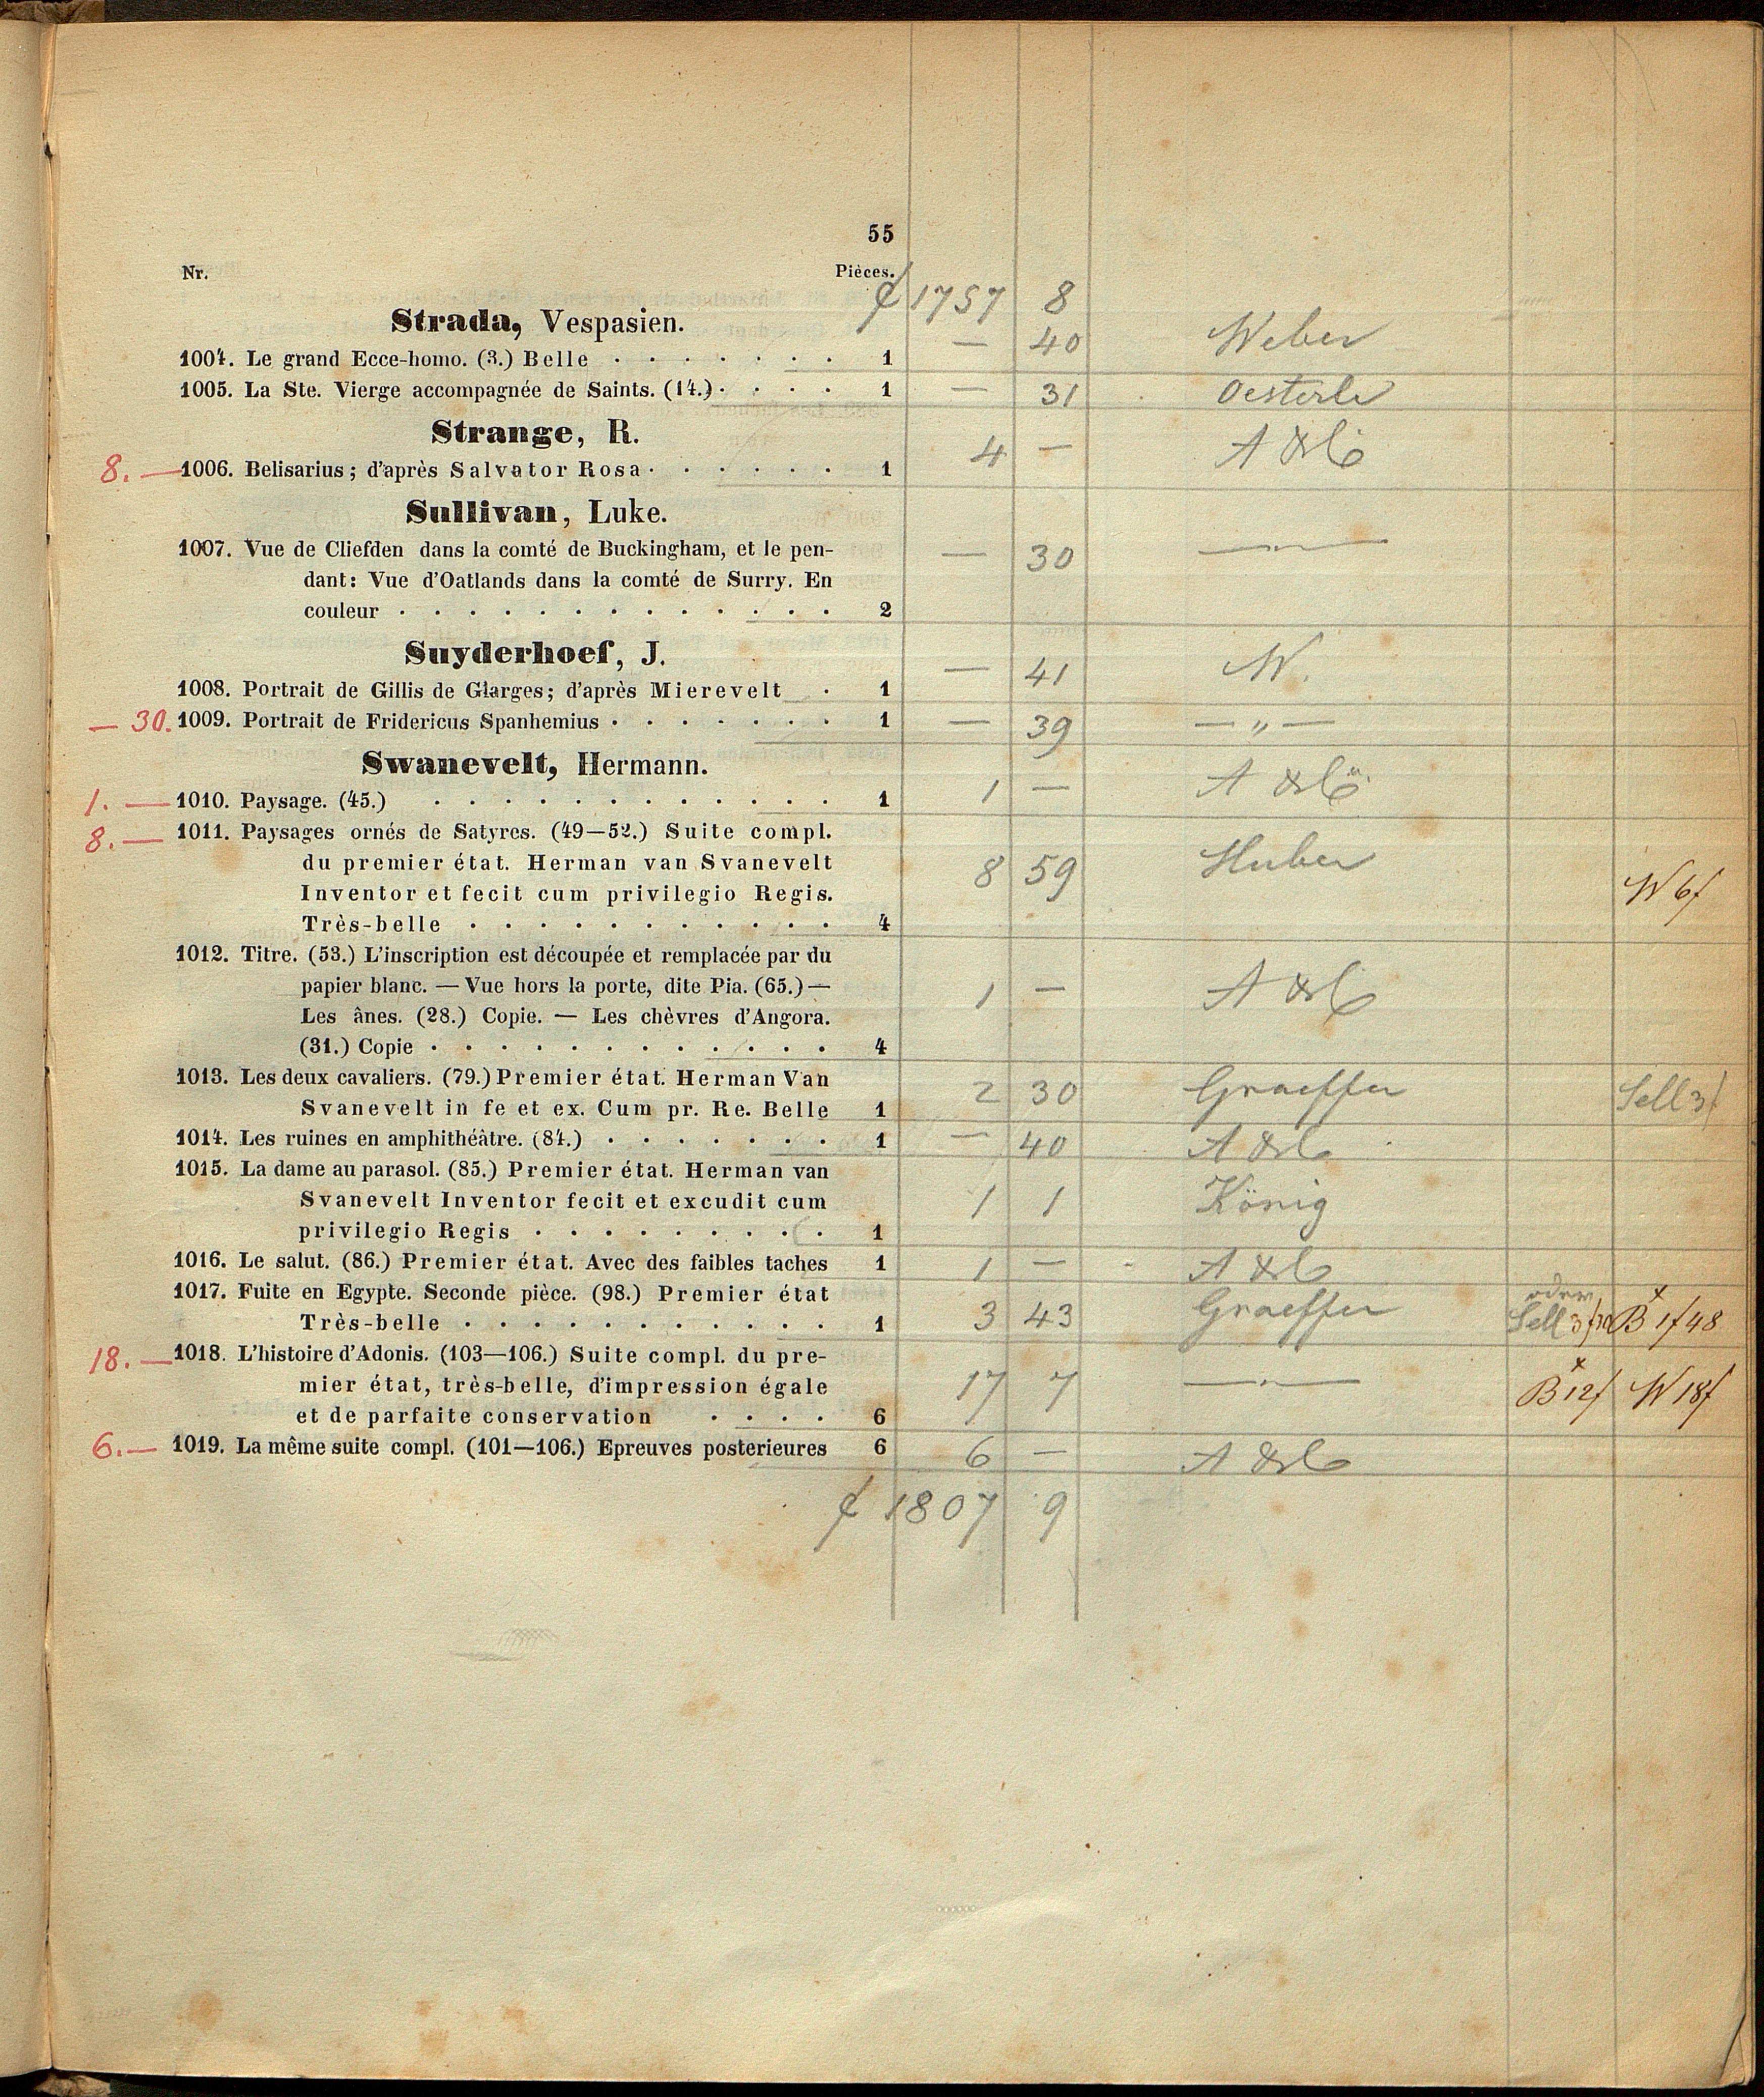 55
Nr. Pièces.
1757 8
Strada, Vespasien.
1004. Le grand Ecce-homo. (3.) Belle . . . . . . . 1 — 40 Weber
1005. La Ste. Vierge accompagnée de Saints. (14.) . . . . 1 — 31 Oesterle
Strange, R.
8. — 1006. Belisarius; d'après Salvator Rosa . . . . . . 1 4 —
Sullivan, Luke.
1007. Vue de Cliefden dans la comté de Buckingham, et le pen- — 30 — " —
dant: Vue d'Oatlands dans la comté de Surry. En
couleur . . . . . . . . . . . . . 2
Suyderhoef, J.
1008. Portrait de Gillis de Glarges; d'après Mierevelt . 1 — 41 W.
— 30. 1009. Portrait de Fridericus Spanhemius . . . . . . . 1 — 39 — " —
Swanevelt, Hermann.
1. — 1010. Paysage. (45.) . . . . . . . . . . . . 1 1 —
8. — 1011. Paysages ornés de Satyres. (49—52.) Suite compl.
du premier état. Herman van Svanevelt 8 59 Huber W 6f
Inventor et fecit cum privilegio Regis.
Très-belle . . . . . . . . . . . 4
1012. Titre. (53.) L'inscription est découpée et remplacée par du
papier blanc. — Vue hors la porte, dite Pia. (65.) — 1 —
Les ânes. (28.) Copie. — Les chèvres d'Angora.
(31.) Copie . . . . . . . . . . . . 4
1013. Les deux cavaliers. (79.) Premier état. Herman Van 2 30 Graeffer Sell 3f
Svanevelt in fe et ex. Cum pr. Re. Belle 1
1014. Les ruines en amphithéâtre. (84.) . . . . . . . 1 — 40
1015. La dame au parasol. (85.) Premier état. Herman van
Svanevelt Inventor fecit et excudit cum 1 1 König
privilegio Regis . . . . . . . . . 1
1016. Le salut. (86.) Premier état. Avec des faibles taches 1 1 —
1017. Fuite en Egypte. Seconde pièce. (98.) Premier état oder
Très-belle . . . . . . . . . . . 1 3 43 Graeffer Sell 3f B 1f 48
18. — 1018. L'histoire d'Adonis. (103—106.) Suite compl. du pre-
mier état, très-belle, d'impression égale 17 7 — " — B 12f W 18f
et de parfaite conservation . . . . 6
6. — 1019. La même suite compl. (101—106.) Epreuves posterieures 6 6 —
1807 9